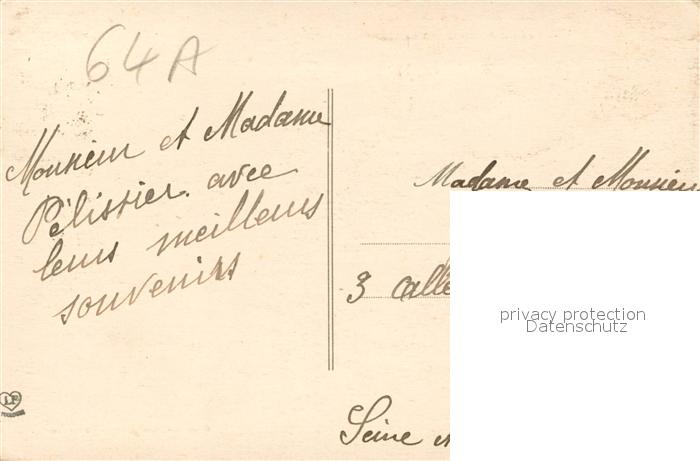 64A
Monsieur et Madame
Pélissier. avec
leurs meilleurs
souvenirs
Madame et Monsieur
3
privacy protection
Datenschutz
Seine